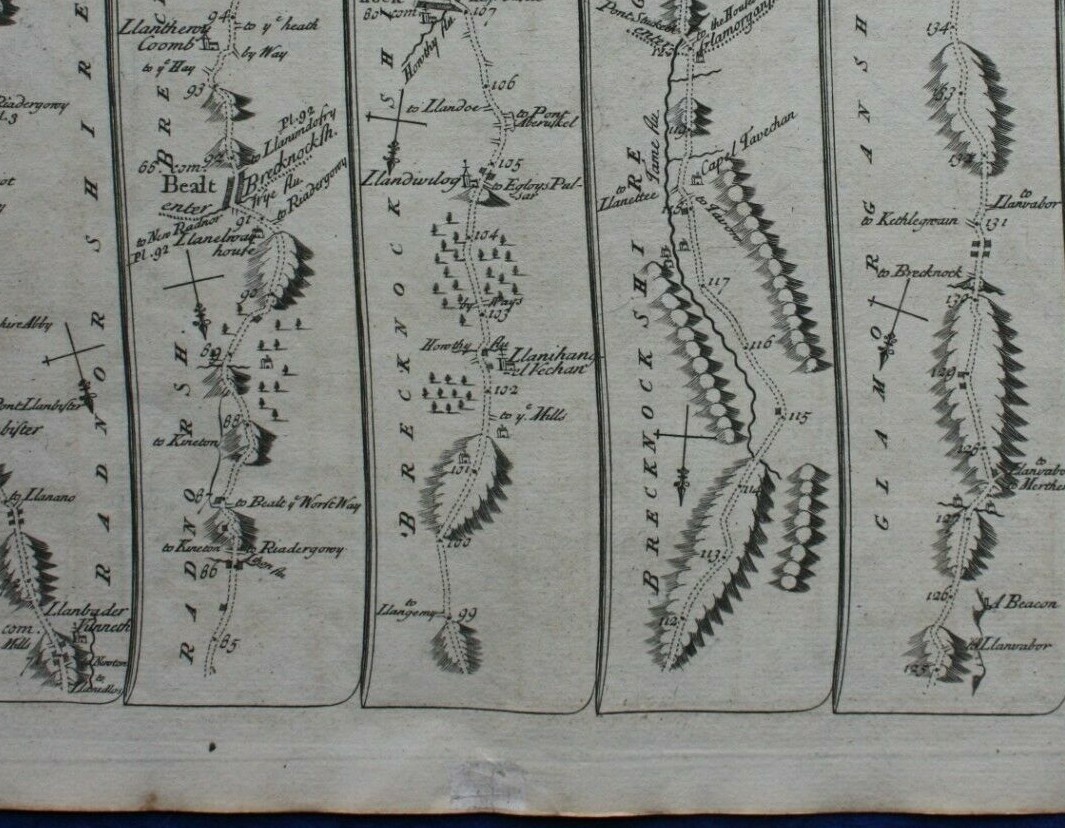 RADNORSHIRE
to Llanano
Llanbader
Vunneth
com.
Mills
Newton
to
Llanidlos
94
to yᵉ heath
Llanthew
Coomb
by Way
to yᵉ Hay
93
BREC
Pl. 92
to Llanimdofry
92
66. com.
Brecknocksh.
Bealt
Wye flu.
enter
to Riadergowy
91
to New Radnor
Pl. 92
Llanelwa
house
90
89
88
to Kineton
87
to Bealt yᵉ Worst Way
to Kineton
to Riadergowy
86
85
RADNORSH.
107
Howthy flu
106
to Llandoe
to Pont
Aberuskel
105
Llandwilog
to Egloys Pul-
sar
104
by Ways
103
Howthy flu
Llanihang-
el Vechan
102
to yᵉ Mills
101
100
to
Llangemy
99
BRECKNOCKSHI
to the
Glamorgan
119
Tame flu.
Capel Tavechan
to
Llanettee
to Tavern
117
116
115
114
113
112
BRECKNOCKSHIRE
134
133
132
to
Llanvabor
to Kethlegwain
131
to Brecknock
130
129
128
to
Llanvabor
Merthe
127
126
A Beacon
to Llanvabor
125
GLAMORGANSH